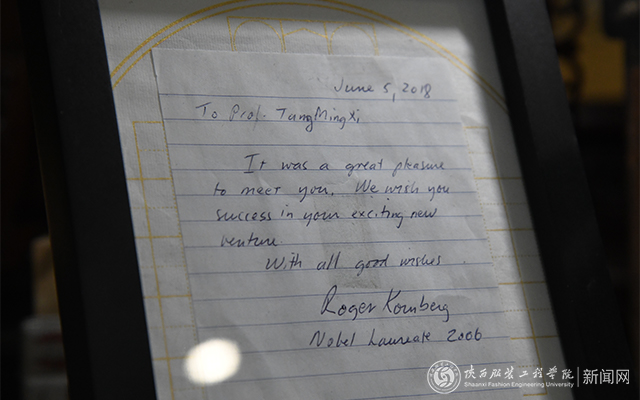 June 5, 2018
To Prof. TangMingXi,
It was a great pleasure
to meet you. We wish you
success in your exciting new
venture
With all good wishes
Roger Kornberg
Nobel Laureate 2006
陕西服装工程学院 新闻网
Shaanxi Fashion Engineering University